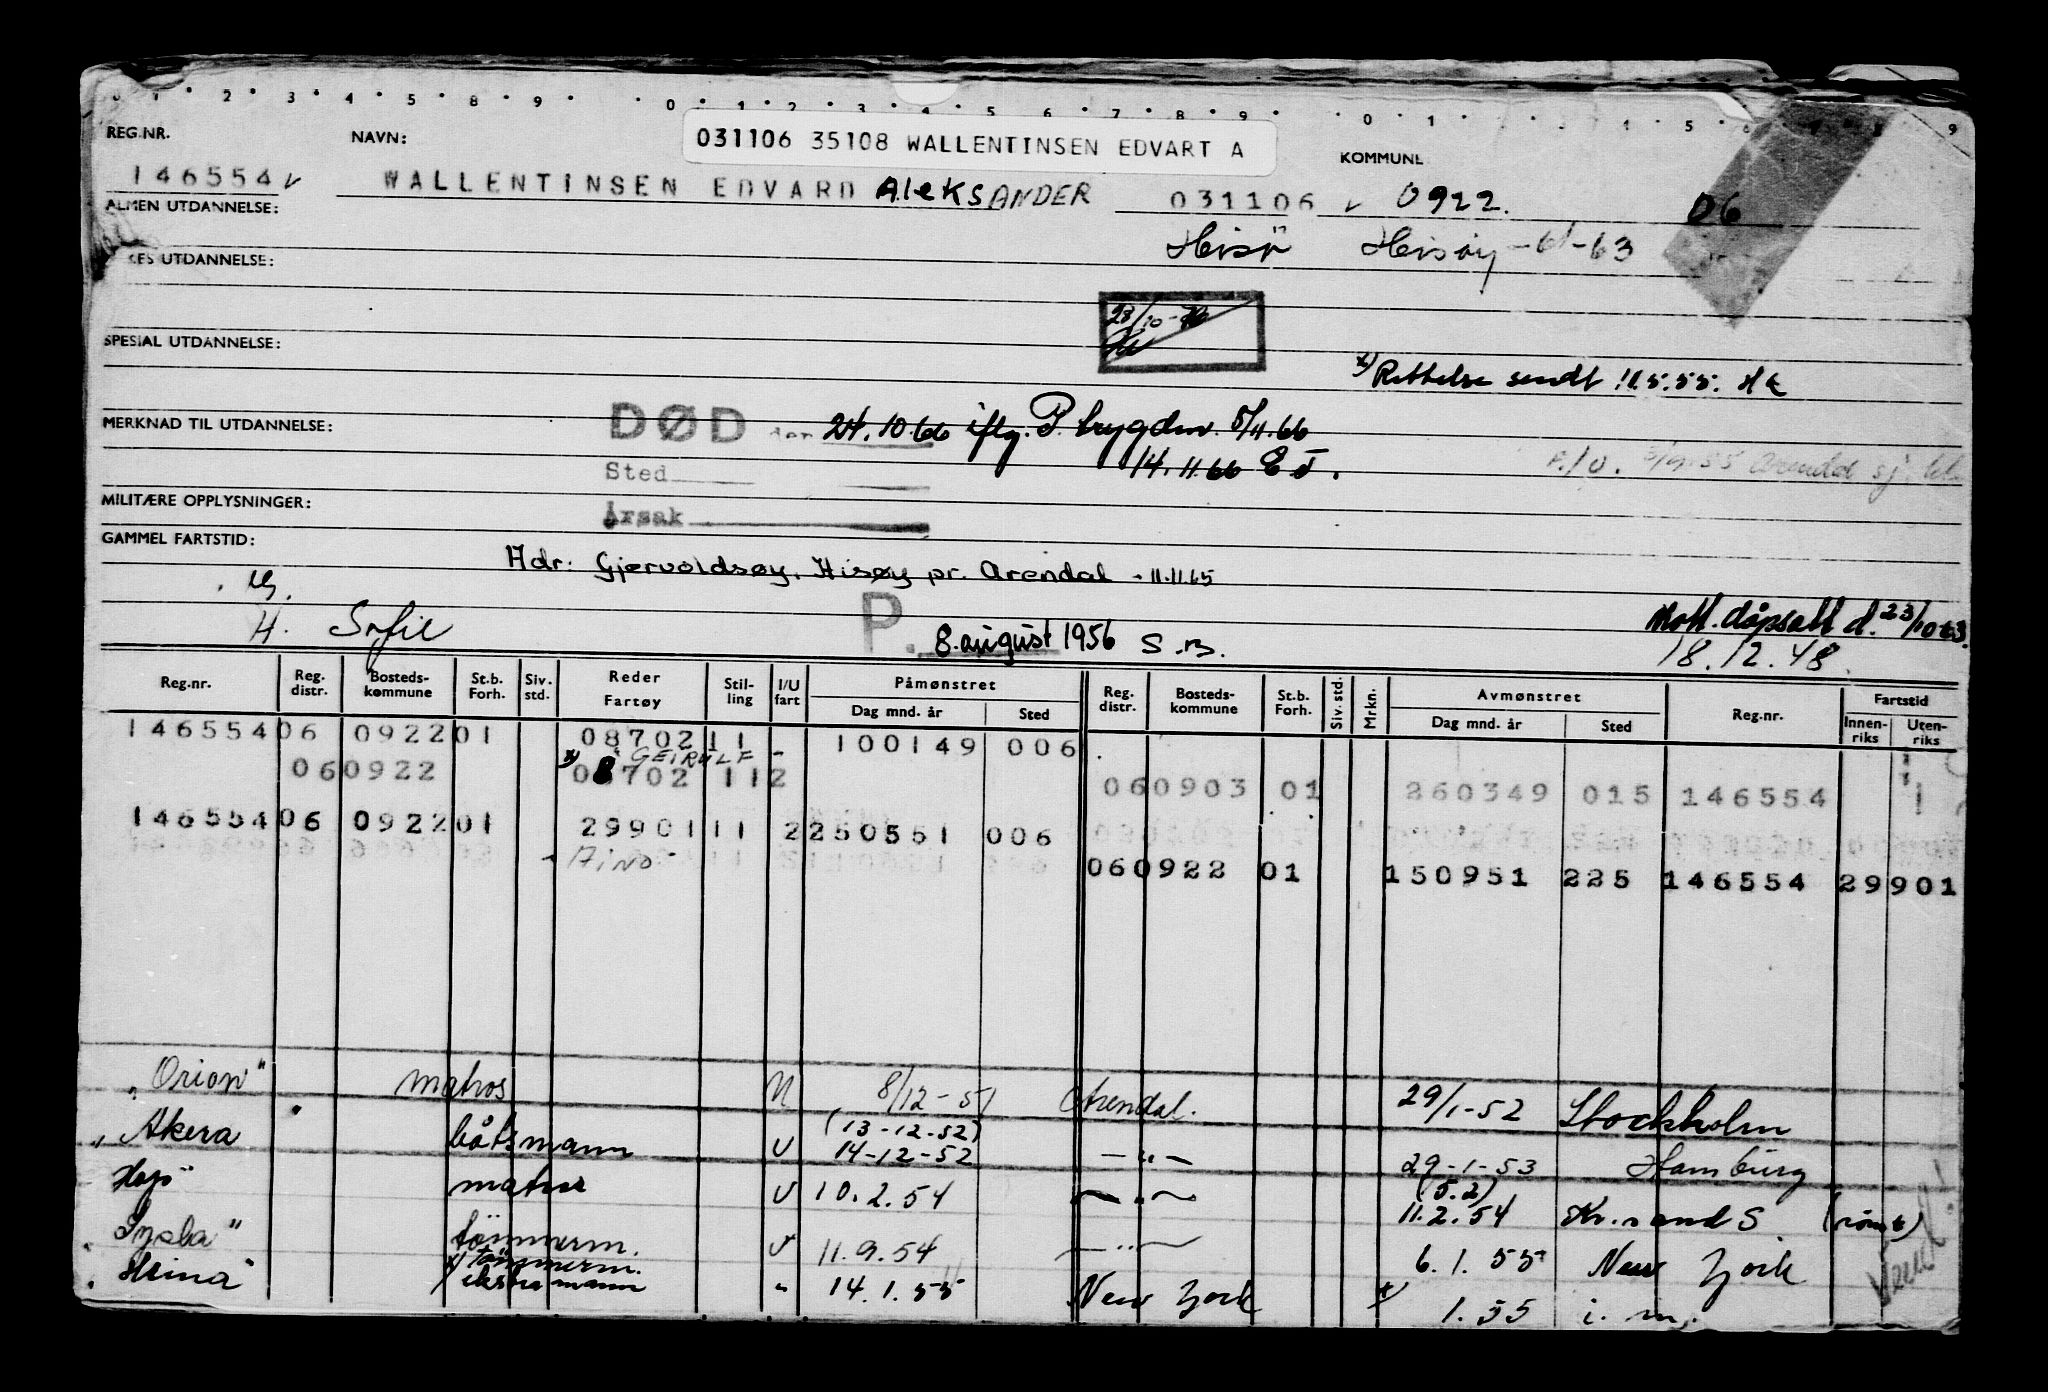 0 1 2 3 4 5 8 9 0 1 2 3 4 5 6 7 8 9 0 1 4 5 6 7 8 9
REG.NR. NAVN: 031106 35108 WALLENTINSEN EDVART A KOMMUNE
146554 WALLENTINSEN EDVARD AleksANDER 031106 0922. 06
ALMEN UTDANNELSE: Hisö Hisøy -61-63
UTDANNELSE:
28/10-
SPESIAL UTDANNELSE: x) Rettelse sendt 11.5.55. HE
MERKNAD TIL UTDANNELSE: DØD den 24.10.66 iflg. P. trygdm. 5/11.66
Sted 14.11.66 E J. Arendal sj.
MILITÆRE OPPLYSNINGER: Årsak
GAMMEL FARTSTID:
Adr: Gjervoldsøy, Hisøy pr. Arendal - 11.11.65
Ug.
H. Sofie P. 8. august 1956 S.B. Mott. dåpsatt d. 23/10 63.
18.12.48.
Reg.nr. Reg. distr. Bosteds-kommune St.b. Forh. Siv. std. Reder Fartøy Stil-ling I/U fart Påmønstret Dag mnd. år Sted Reg. distr. Bosteds-kommune St.b. Forh. Siv. std. Mrkn. Avmønstret Dag mnd. år Sted Reg.nr. Fartstid Innen-riks Uten-riks
146554 06 0922 01 08702 11 - 100149 006
x) "GEIRULF
06 0922 08702 11 2 06 0903 01 260349 015 146554 1
146554 06 0922 01 29901 11 2 250551 006
- Aino - 06 0922 01 150951 225 146554 29901
"Orion" matros U 8/12-51 Arendal. 29/1-52 Stockholm
(13-12-52)
"Akera båtsmann U 14-12-52 -"- 29-1-53 Hamburg
(5.2)
Høyo" matros U 10.2.54 -"- 11.2.54 Kr.sand S (rømt)
"Sysla" tömmerm. U 11.9.54 -"- 6.1.55 New York
x) tömmerm.
"Heina" ekstramann " 14.1.55 New York x) 1.55 i. m.
Vend!